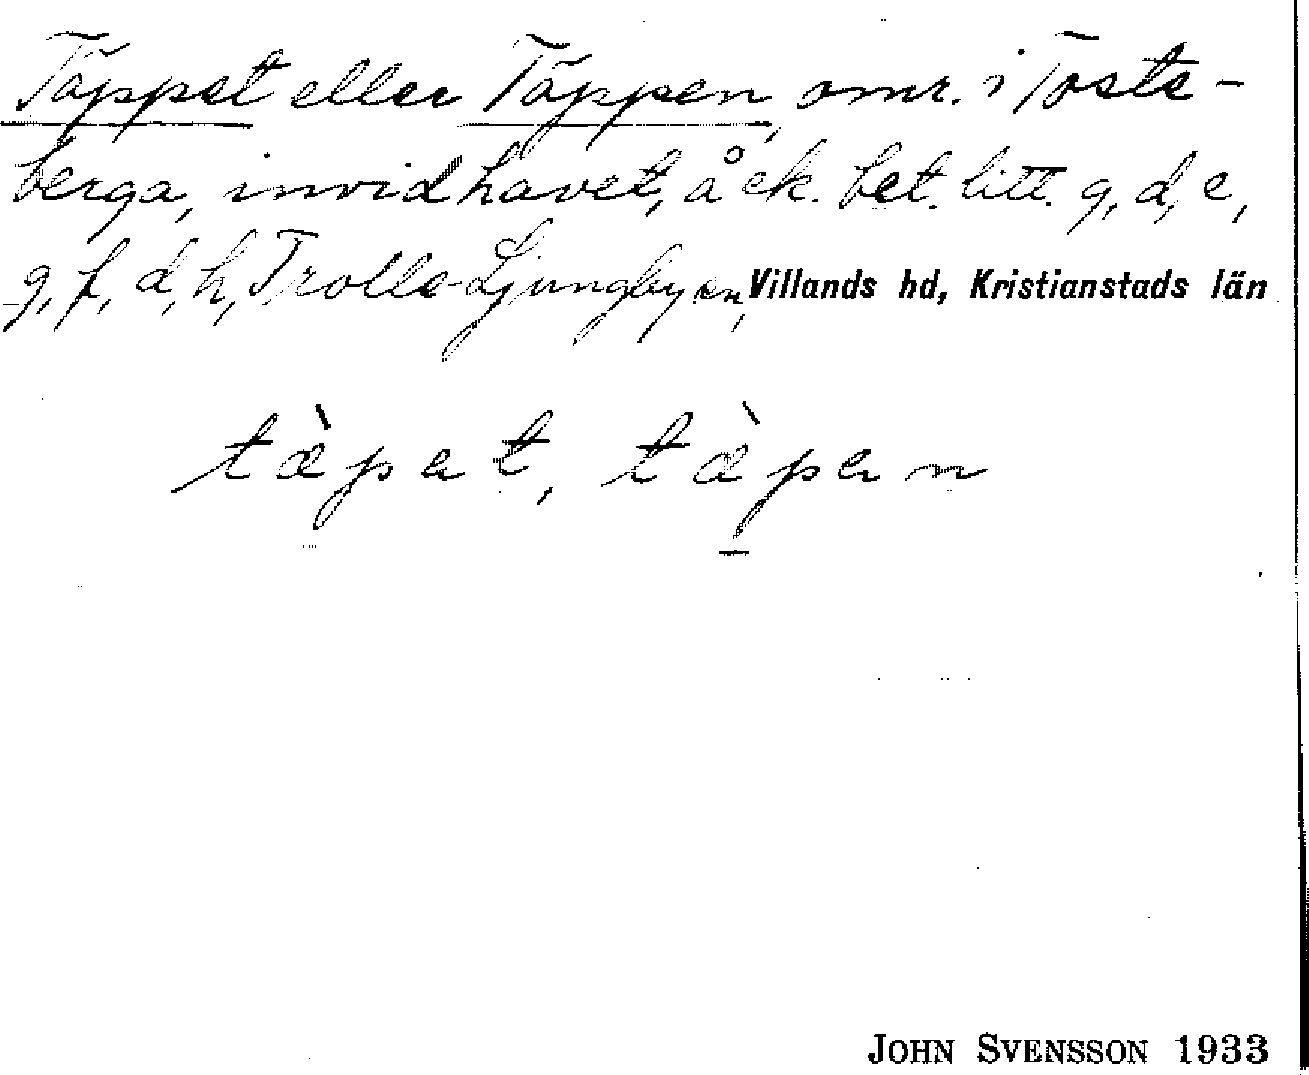 Täppet eller Täppen, omr. i Toste-
berga, invid havet, å ek. bet. litt. g, d, e,
g, f, d, h, Trolle-Ljungby sn, Villands hd, Kristianstads län
tæ̀pet, tæ̀pen
JOHN SVENSSON 1933